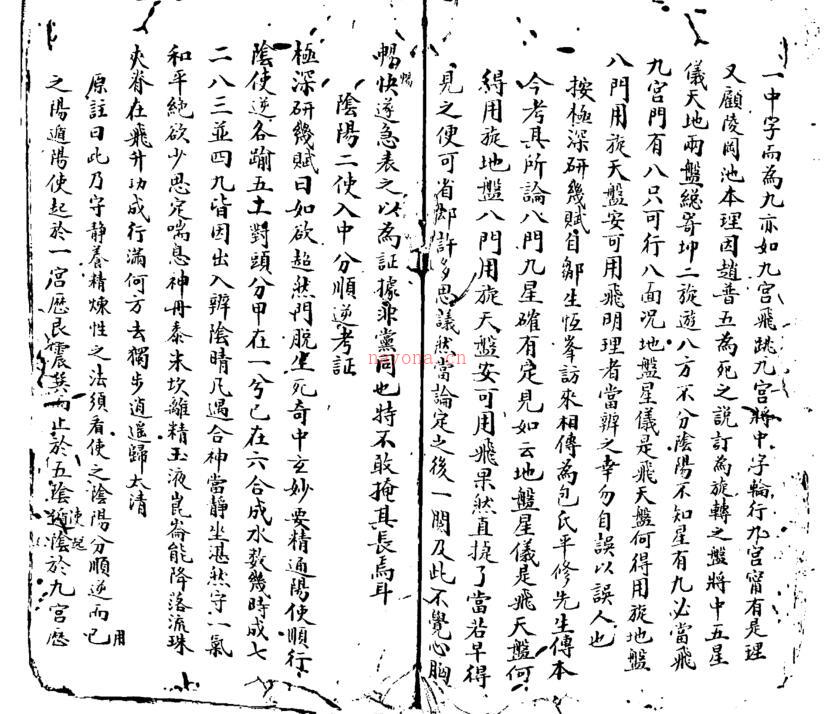 一中字而為九亦如九宮飛跳九宮將中字輪行九宮甯有是理
又顧陵岡池本理因趙普五為死之說訂為旋轉之盤將中五星
儀天地兩盤総寄坤二旋遊八方不分陰陽不知星有九必當飛
九宮門有八只可行八面况地盤星儀是飛天盤何得用旋地盤
八門用旋天盤安可用飛明理者當辨之幸勿自誤以誤人也
按極深研幾賦自鄒生恆峯訪來相傳為包氏平修先生傳本
今考其所論八門九星確有定見如云地盤星儀是飛天盤何
得用旋地盤八門用旋天盤安可用飛果然直捷了當若早得
見之便可省却許多思議然當論定之後一閱及此不覺心胸
暢快遂急表之以為証據非黨同也特不敢掩其長焉耳
暢
陰陽二使入中分順逆考証
極深研幾賦曰如欲超然門脫生死奇中玄妙要精通陽使順行
陰使逆各踰五土對頭分甲在一兮己在六合成水数幾時成七
二八三並四九皆因出入辨陰晴凡遇合神當靜坐湛然守一氣
和平絕欲少思定喘息神丹泰米坎離精玉液崑崙能降落流珠
夾脊在飛升功成行滿何方去獨步逍遥歸太清
原註曰此乃字靜養精煉性之法須看使之陰陽分順逆而已
用
之陽遁陽使起於一宮歷艮震巽而止於五陰遁陰於九宮歷
使起
nayona.cn